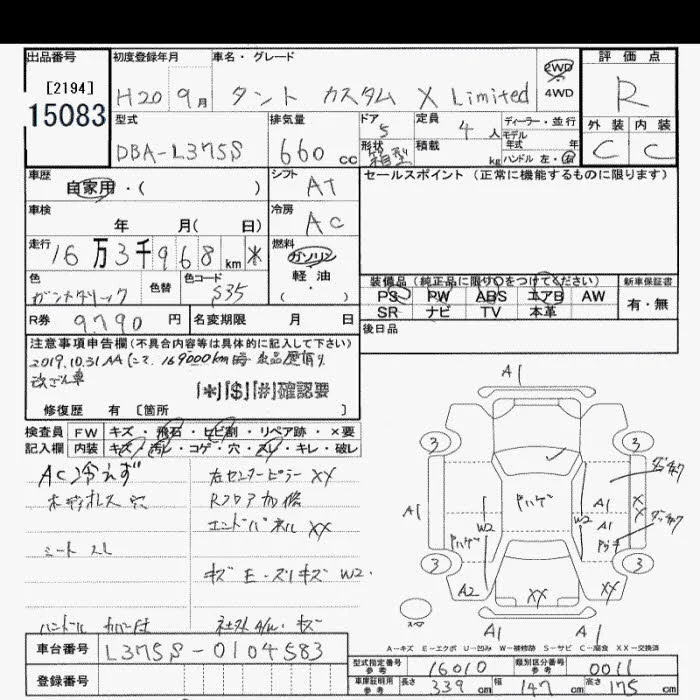 出品番号 初度登録年月 車名・グレード 評価点
[2194] 15083
H20 9月 タント カスタム X Limited 2WD 4WD R
型式 排気量 ドア 定員 ディーラー・並行
DBA-L375S 660cc 5 4人 モデル年式 年
形状 箱型 積載 kg ハンドル 左・右
外装 内装
C C
車歴 自家用・( ) シフト AT セールスポイント (正常に機能するものに限ります)
車検 年 月( 日) 冷房 AC
走行 16万3千968km * 燃料 ガソリン
軽・油
( ・ )
色 色替 色コード S35
装備品(純正品に限り○をつけてください) 新車保証書
PS PW ABS エアB AW 有・無
SR ナビ TV 本革
R券 9.790円 名変期限 月 日 後日品
注意事項申告欄(不具合内容等は具体的に記入して下さい)
2019.10.31 AAにて 169000km時 出品歴有り
改ざん車
[*][$][#]確認要
修復歴 有 [箇所 ]
検査員 FW キズ・飛石・ヒビ割・リペア跡・×要
記入欄 内装 キズ・汚レ・コゲ・穴・スレ・キレ・破レ
AC冷えず 左センターピラー XX
穴 Rフロア加修
シート スレ エンドパネル XX
キズ E・スリキズ W2.
ハンドル カバー付 社外A/W・キズ
A1
3 3
A1 Pハゲ A1 X X
W2 W2 A1
Pハゲ
3 3
A2 XX XX
A1 A1
A-キズ E-エクボ U-凹み W-補修跡 S-サビ C-腐食 XX-交換済
車台番号 L375S-0104583
登録番号
型式指定番号 参考 16010 類別区分番号 参考 0011
車庫証明用 参考 長さ 339cm 幅 147cm 高さ 175cm